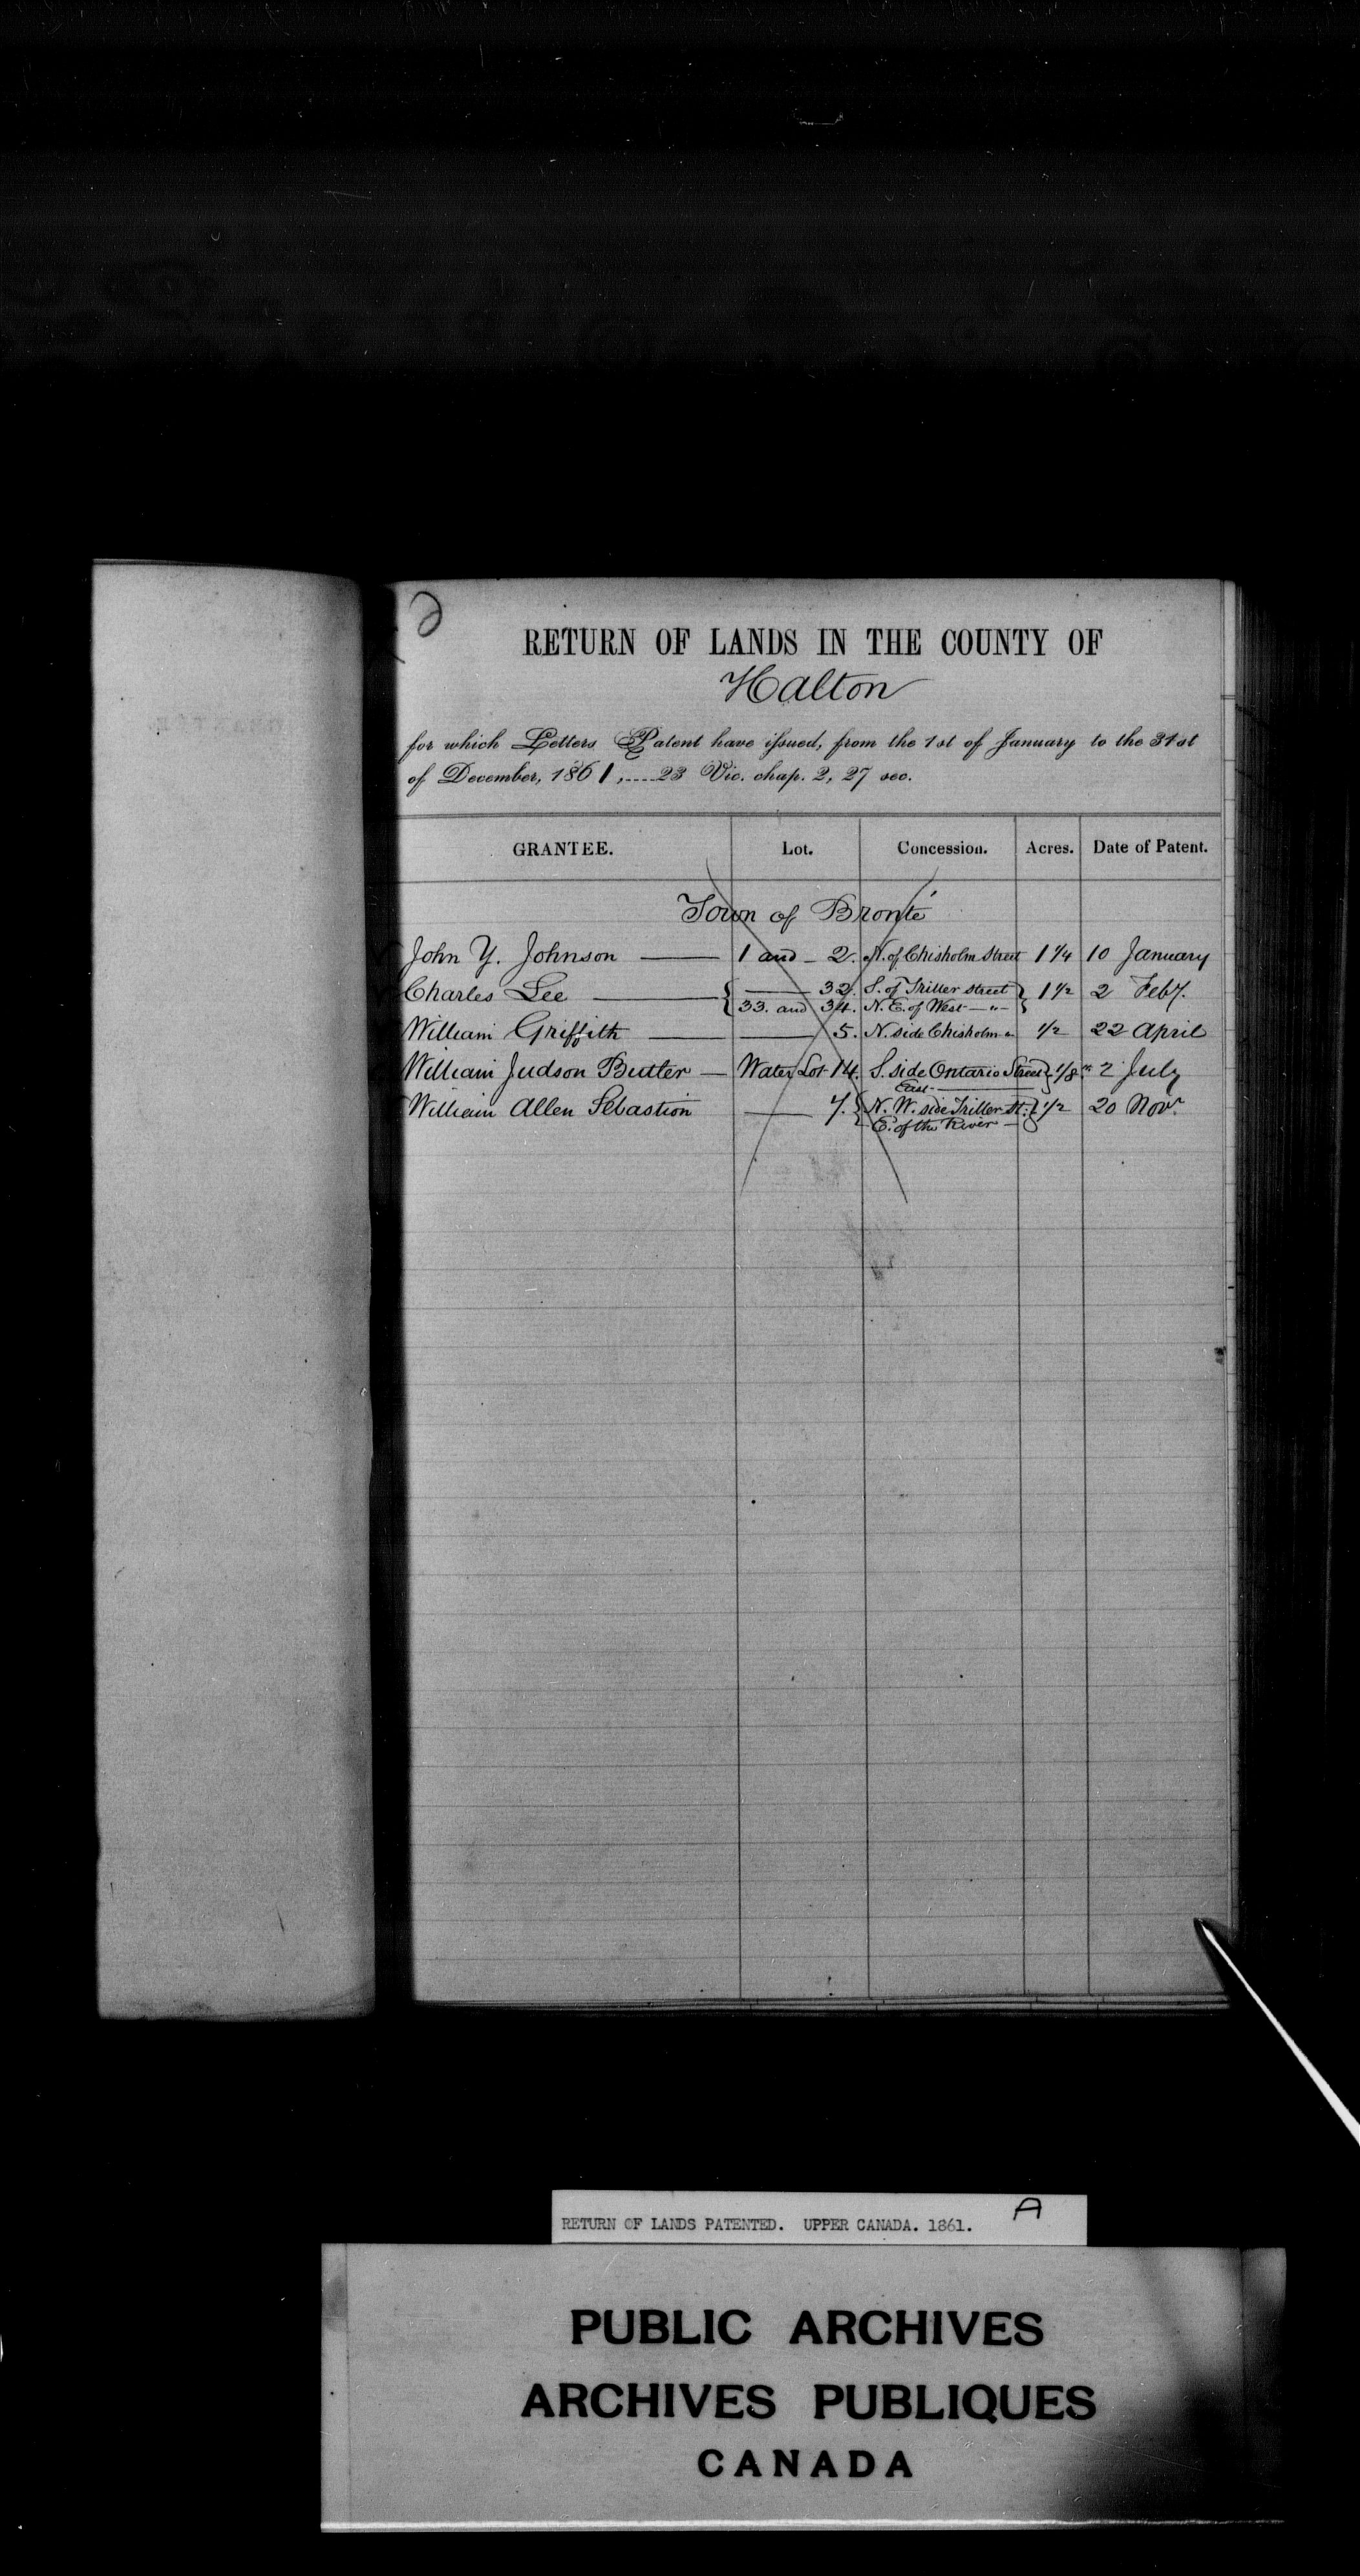 RETURN OF LANDS IN THE COUNTY OF
Halton
for which Letters Patent have issued, from the 1st of January to the 31st
of December, 1861,....23 Vic. chap. 2, 27 sec.
GRANTEE. Lot. Concession. Acres. Date of Patent.
Town of Bronté
John Y. Johnson 1 and 2. N. of Chisholm Street 1 1/4 10 January
Charles Lee 32. S. of Triller Street 1 1/2 2 Feby.
33. and 34. N. E. of West — " —
William Griffith 5. N. side Chisholm " 1/2 22 April
William Judson Butler Water Lot 14. S. side Ontario Street 1/8th 2 July
East
William Allen Sebastion 7. N. W. side Triller St. 1/2 20 Novr.
E. of the River
RETURN OF LANDS PATENTED. UPPER CANADA. 1861. A
PUBLIC ARCHIVES
ARCHIVES PUBLIQUES
CANADA